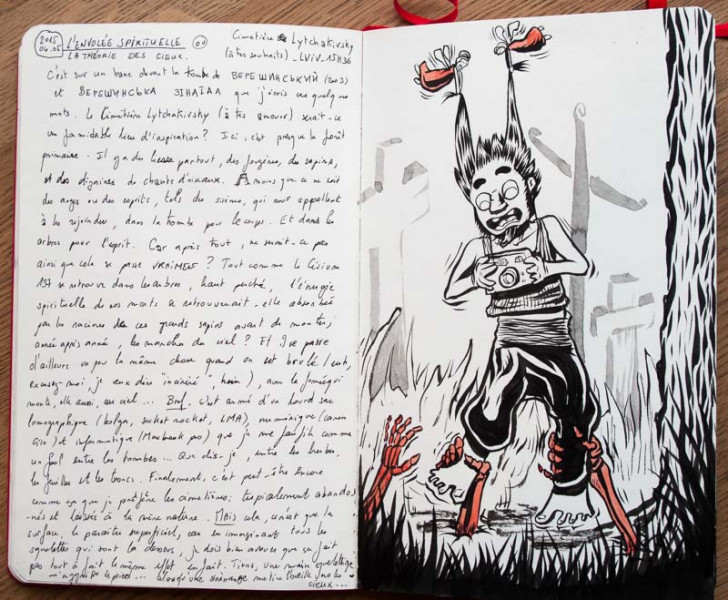 2015 04.05 L'ENVOLÉE SPIRITUELLE
LA THÉORIE DES CIEUX.
Cimetière Lytchakivsky
(à tes souhaits) - LVIV - 15H36
C'est sur un banc devant la tombe de ВЕРЕШИНСЬКИЙ (2003)
et ВЕРЕШИНСЬКА ЗІНАЇДА que j'écris ces quelques
mots. Le Cimetière Lytchakivsky (à tes amours) serait-ce
un formidable lieu d'inspiration ? Ici, c'est presque la forêt
primaire. Il y a du lierre partout, des fougères, des sapins,
et des dizaines de chants d'oiseaux. A moins que ce ne soit
des anges ou des esprits, tels des sirènes, qui nous appellent
à les rejoindre, dans la tombe pour le corps. Et dans les
arbres pour l'esprit. Car après tout, ne serait-ce pas
ainsi que cela se passe VRAIMENT ? Tout comme le Césium
137 se retrouve dans les arbres, haut perché, l'énergie
spirituelle de nos morts se retrouverait-elle absorbée
par les racines de ces grands sapins avant de monter,
année après année, les marches du ciel ? Et il se passe
d'ailleurs un peu la même chose quand on est brûlé (euh,
excusez-moi, je veux dire "incinéré", hein), avec la fumée qui
monte, elle aussi, au ciel... Bref. C'est armé d'un lourd sac
lomographique (holga, socket rocket, LMA), numérique (canon
) et informatique (Macbook pro) que je me faufile comme
un fou entre les tombes... Que dis-je, entre les herbes,
les feuilles et les troncs. Finalement, c'est peut-être encore
comme ça que je préfère les cimetières: tropicalement abandon-
-nés et laissés à la mère nature. MAIS cela, ce n'est que la
surface, le paraître superficiel, car en imaginant tous les
squelettes qui sont là dessous, je dois bien avouer que ça fait
pas tout à fait le même effet en fait. Tiens, une main squelettique
m'agrippe le pied... alors qu'une me tire l'oreille vers les
CIEUX...